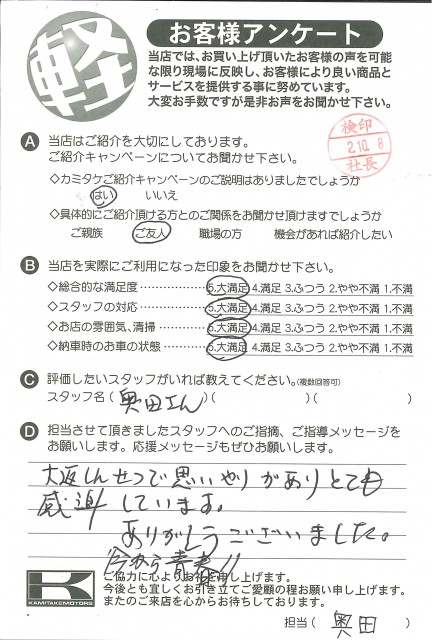 軽
お客様アンケート
当店では、お買い上げ頂いたお客様の声を可能
な限り現場に反映し、お客様により良い商品と
サービスを提供する事に努めています。
大変お手数ですが是非お声をお聞かせ下さい。
検印
2.10.8
社長
A 当店はご紹介を大切にしております。
ご紹介キャンペーンについてお聞かせ下さい。
◇カミタケご紹介キャンペーンのご説明はありましたでしょうか
はい いいえ
◇具体的にご紹介頂ける方とのご関係をお聞かせ頂けますでしょうか
ご親族 ご友人 職場の方 機会があれば紹介したい
B 当店を実際にご利用になった印象をお聞かせ下さい。
◇総合的な満足度…………5.大満足 4.満足 3.ふつう 2.やや不満 1.不満
◇スタッフの対応…………5.大満足 4.満足 3.ふつう 2.やや不満 1.不満
◇お店の雰囲気、清掃……5.大満足 4.満足 3.ふつう 2.やや不満 1.不満
◇納車時のお車の状態……5.大満足 4.満足 3.ふつう 2.やや不満 1.不満
C 評価したいスタッフがいれば教えてください。(複数回答可)
スタッフ名(奥田さん)( )( )
D 担当させて頂きましたスタッフへのご指摘、ご指導メッセージを
お願いします。応援メッセージもぜひお願いします。
大変しんせつで思いやりがありとても
感謝しています。
ありがとうございました。
今から青春!!
ご協力に心よりお礼を申し上げます。
今後とも宜しくお引き立てご愛顧の程お願い申し上げます。
またのご来店を心からお待ちしております。
K
KAMITAKEMOTORS
担当(奥田)